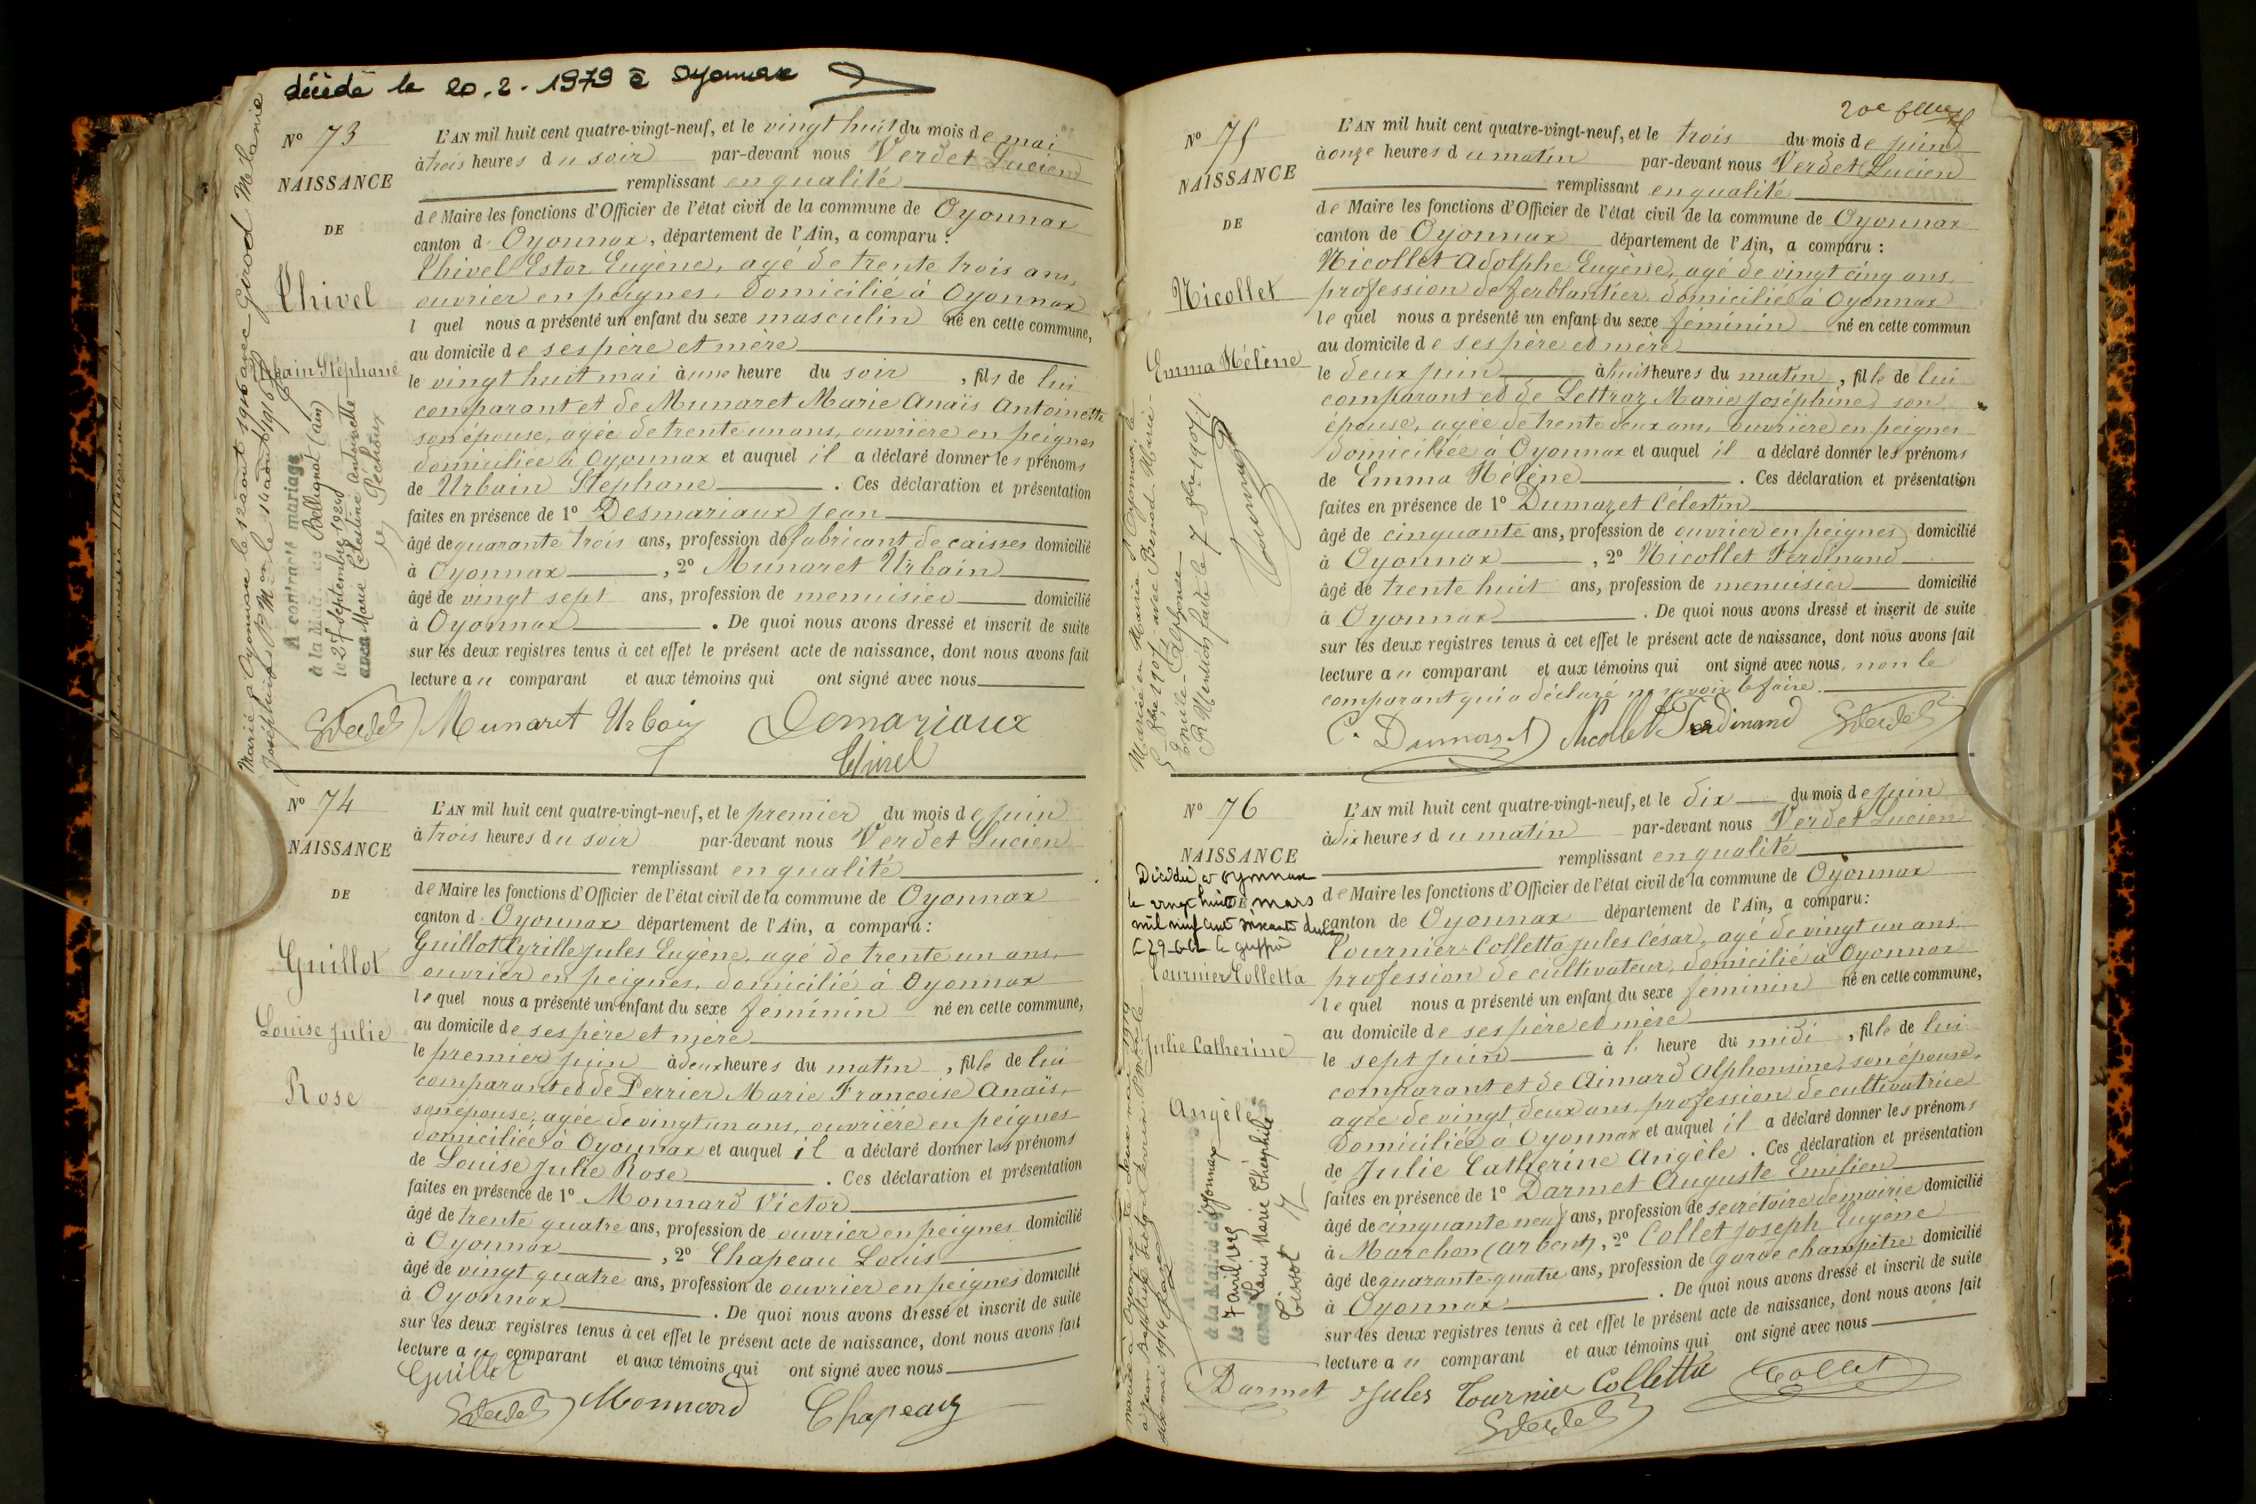 décédé le 20.2.1979 à Oyonnax
N° 73
NAISSANCE
DE
Chivel
Urbain Stéphane
L'AN mil huit cent quatre-vingt-neuf, et le vingt huit du mois de mai
à trois heures du soir par-devant nous Verdet Lucien
remplissant en qualité
de Maire les fonctions d'Officier de l'état civil de la commune de Oyonnax
canton d' Oyonnax, département de l'Ain, a comparu :
Chivel Estor Eugène, agé de trente trois ans,
ouvrier en peignes, domicilié à Oyonnax
l quel nous a présenté un enfant du sexe masculin né en cette commune,
au domicile de ses père et mère
le vingt huit mai à une heure du soir, fils de lui
comparant et de Munaret Marie Anaïs Antoinette
son épouse, agée de trente un ans, ouvrière en peignes
domiciliée à Oyonnax et auquel il a déclaré donner les prénoms
de Urbain Stéphane . Ces déclaration et présentation
faites en présence de 1° Desmariaux Jean
âgé de quarante trois ans, profession de fabricant de caisses domicilié
à Oyonnax , 2° Munaret Urbain
âgé de vingt sept ans, profession de menuisier domicilié
à Oyonnax . De quoi nous avons dressé et inscrit de suite
sur les deux registres tenus à cet effet le présent acte de naissance, dont nous avons fait
lecture au comparant et aux témoins qui ont signé avec nous
Munaret Urbain Demariaux
Chivel
A contracté mariage
à la Mairie de Bellignat (ain)
le 27 septembre 1920
avec Marie Célestine Antoinette
Péchoux
N° 74
NAISSANCE
DE
Guillot
Louise Julie
Rose
L'AN mil huit cent quatre-vingt-neuf, et le premier du mois de juin
à trois heures du soir par-devant nous Verdet Lucien
remplissant en qualité
de Maire les fonctions d'Officier de l'état civil de la commune de Oyonnax
canton d' Oyonnax département de l'Ain, a comparu :
Guillot Cyrille Jules Eugène, agé de trente un ans,
ouvrier en peignes, domicilié à Oyonnax
le quel nous a présenté un enfant du sexe féminin né en cette commune,
au domicile de ses père et mère
le premier juin à deux heures du matin, fille de lui
comparant et de Perrier Marie Françoise Anaïs,
son épouse, agée de vingt un ans, ouvrière en peignes
domiciliée à Oyonnax et auquel il a déclaré donner les prénoms
de Louise Julie Rose . Ces déclaration et présentation
faites en présence de 1° Monnard Victor
âgé de trente quatre ans, profession de ouvrier en peignes domicilié
à Oyonnax , 2° Chapeau Louis
âgé de vingt quatre ans, profession de ouvrier en peignes domicilié
à Oyonnax . De quoi nous avons dressé et inscrit de suite
sur les deux registres tenus à cet effet le présent acte de naissance, dont nous avons fait
lecture au comparant et aux témoins qui ont signé avec nous
Guillot
Monnard Chapeau
N° 75
NAISSANCE
DE
Nicollet
Emma Hélène
L'AN mil huit cent quatre-vingt-neuf, et le trois du mois de juin
à onze heures du matin par-devant nous Verdet Lucien
remplissant en qualité
de Maire les fonctions d'Officier de l'état civil de la commune de Oyonnax
canton de Oyonnax département de l'Ain, a comparu :
Nicollet Adolphe Eugène, agé de vingt cinq ans,
profession de ferblantier domicilié à Oyonnax
le quel nous a présenté un enfant du sexe féminin né en cette commun
au domicile de ses père et mère
le deux juin à huit heures du matin, fille de lui
comparant et de Lettraz Marie Joséphine son
épouse, agée de trente deux ans, ouvrière en peignes
domiciliée à Oyonnax et auquel il a déclaré donner les prénoms
de Emma Hélène . Ces déclaration et présentation
faites en présence de 1° Dumazet Célestin
âgé de cinquante ans, profession de ouvrier en peignes domicilié
à Oyonnax , 2° Nicollet Ferdinand
âgé de trente huit ans, profession de menuisier domicilié
à Oyonnax . De quoi nous avons dressé et inscrit de suite
sur les deux registres tenus à cet effet le présent acte de naissance, dont nous avons fait
lecture au comparant et aux témoins qui ont signé avec nous, non le
comparant qui a déclaré ne savoir le faire
C. Dumazet Nicollet Ferdinand
N° 76
NAISSANCE
DE
Décédée à Oyonnax
le vingt huit mars
mil neuf cent soixante deux
Tournier Colletta
Julie Catherine
Angèle
L'AN mil huit cent quatre-vingt-neuf, et le dix du mois de juin
à dix heures du matin par-devant nous Verdet Lucien
remplissant en qualité
de Maire les fonctions d'Officier de l'état civil de la commune de Oyonnax
canton de Oyonnax département de l'Ain, a comparu :
Tournier-Colletta Jules César, agé de vingt un ans
profession de cultivateur, domicilié à Oyonnax
le quel nous a présenté un enfant du sexe féminin né en cette commune,
au domicile de ses père et mère
le sept juin à l' heure du midi, fille de lui
comparant et de Aimard Alphonsine, son épouse,
agée de vingt deux ans, profession de cultivatrice
domiciliée à Oyonnax et auquel il a déclaré donner les prénoms
de Julie Catherine Angèle . Ces déclaration et présentation
faites en présence de 1° Darmet Auguste Emilien
âgé de cinquante neuf ans, profession de secrétaire de mairie domicilié
à Marchon (Arbent), 2° Collet Joseph Eugène
âgé de quarante quatre ans, profession de garde champêtre domicilié
à Oyonnax . De quoi nous avons dressé et inscrit de suite
sur les deux registres tenus à cet effet le présent acte de naissance, dont nous avons fait
lecture au comparant et aux témoins qui ont signé avec nous
Darmet Jules Tournier Colletta Collet
à la Mairie de Oyonnax
le 7 avril
avec Louis Marie Théophile
Tissot